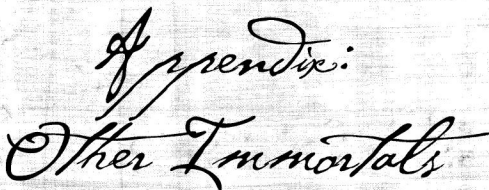 Appendix:
Other Immortals